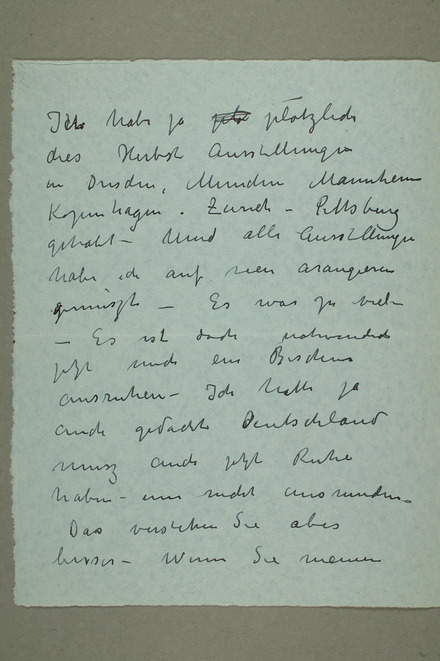 Ich habe ja plötzlich
dies Herbst Ausstellungen
in Dresden, Mannheim
Kopenhagen. Zürich – Pittsburg
gehabt – Und alle Ausstellungen
habe ich auf neu arangieren
gemuszt – Es war zu viel –
– Es ist doch notwendig
jetzt mich ein Bischen
ausruhen – Ich hatte ja
auch gedacht Deutschland
musz auch jetzt Ruhe
haben – nicht
Das verstehen Sie aber
besser – Wenn Sie meinen